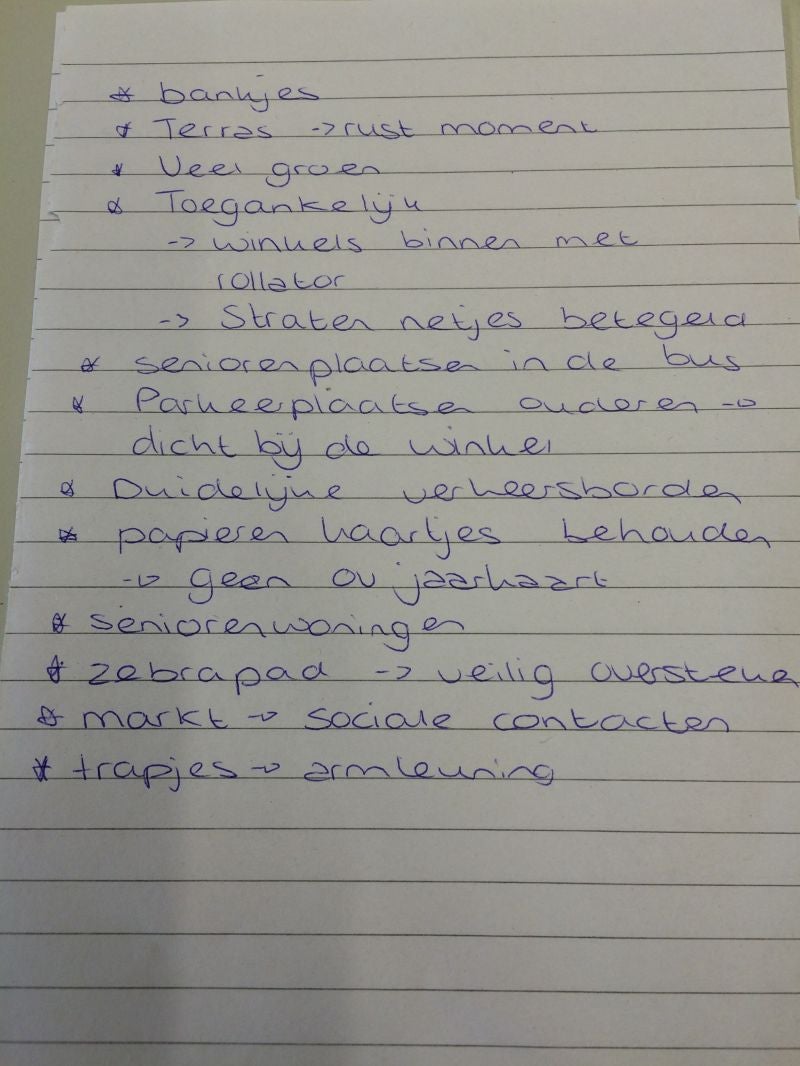 * bankjes
* Terras -> rust moment
* Veel groen
* Toegankelijk
-> winkels binnen met
rollator
-> Straten netjes betegeld
* seniorenplaatsen in de bus
* Parkeerplaatsen ouderen ->
dicht bij de winkel
* Duidelijke verkeersborden
* papieren kaartjes behouden
-> geen ov jaarkaart
* seniorenwoningen
* zebrapad -> veilig oversteken
* markt -> sociale contacten
* trapjes -> armleuning